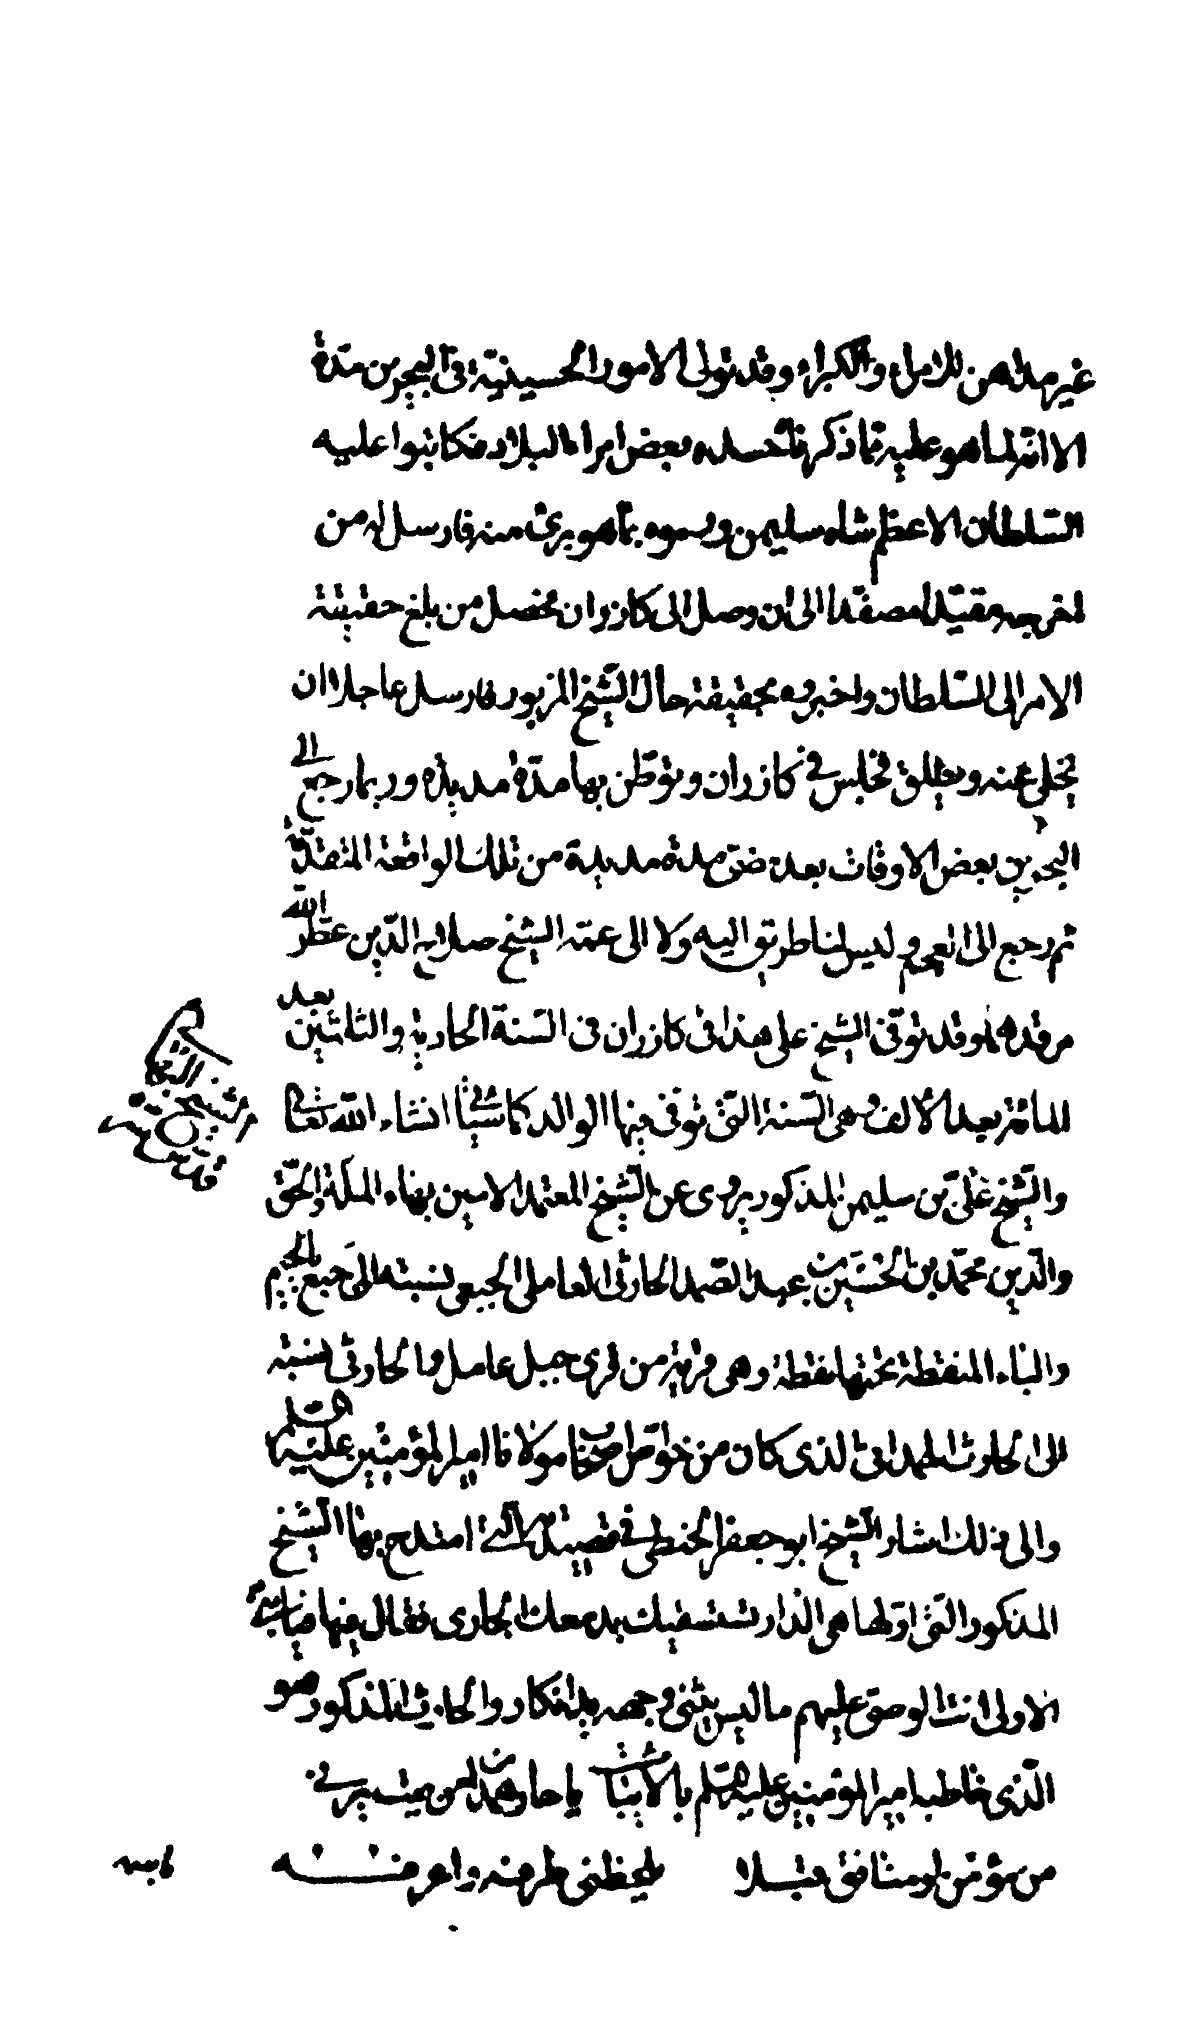 غير مداهن للامراء والكبراء وقد تولى الامور الحسينية في البحرين مدة
الا انه لما هو عليه مما ذكرناه حسده بعض امراء البلاد فكاتبوا عليه
السلطان الاعظم شاه سليمن ورموه بما هو برئ منه فارسل له من
اخرجه مقيدا مصفدا الى ان وصل الى كازران فحصل من بلغ حقيقة
الامر الى السلطان واخبروه بحقيقة حال الشيخ المزبور فارسل عاجلا ان
يخلى عنه ويطلق فجلس في كازران وتوطن بها مدة مديدة وربما رجع الى
البحرين بعض الاوقات بعد مضى مدة مديدة من تلك الواقعة المتقدمة
ثم رجع الى العجم وليس لنا طريق اليه ولا الى عمه الشيخ صلاح الدين عطر الله
مرقدهما وقد توفى الشيخ على هذا فى كازران فى السنة الحادية والثلثين بعد
المائة بعد الالف وهى السنة التى توفى فيها الوالد كما سيأتى انشاء الله تعالى
والشيخ على بن سليمن المذكور يروى عن الشيخ المعتمد الامين بهاء الملة والحق
والدين محمد بن الحسين بن عبد الصمد الحارثى العاملى الجبعى نسبته الى جبع بالجيم
والباء المنقطة تحتها نقطة وهى قرية من قرى جبل عامل والحارثى نسبته
الى الحارث الهمدانى الذى كان من خواص اصحاب مولانا امير المؤمنين عليه السلم
والى ذلك اشار الشيخ ابو جعفر الخطى في قصيدته التى امتدح بها الشيخ
المذكور التى اولها هى الدار تستسقيك مدمعك الجارى فقال فيها
الاولى انت الوصى عليهم ما ليس يثنى وجهه يد انكار والحارث المذكور هو
الذى خاطبه امير المؤمنين عليه السلم بالابيات يا حار همدان من يمت يرنى
من مؤمن او منافق قبلا يلحظنى طرفه واعرفه
الشيخ البهائى
قدس سره